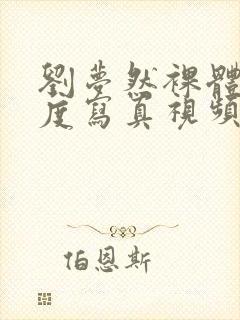 劉夢然裸體
度寫真視頻
伯恩斯